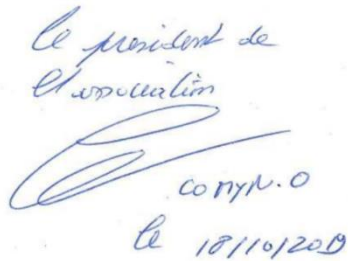 Le president de
l'association
COMYN.O
le 18/10/2019